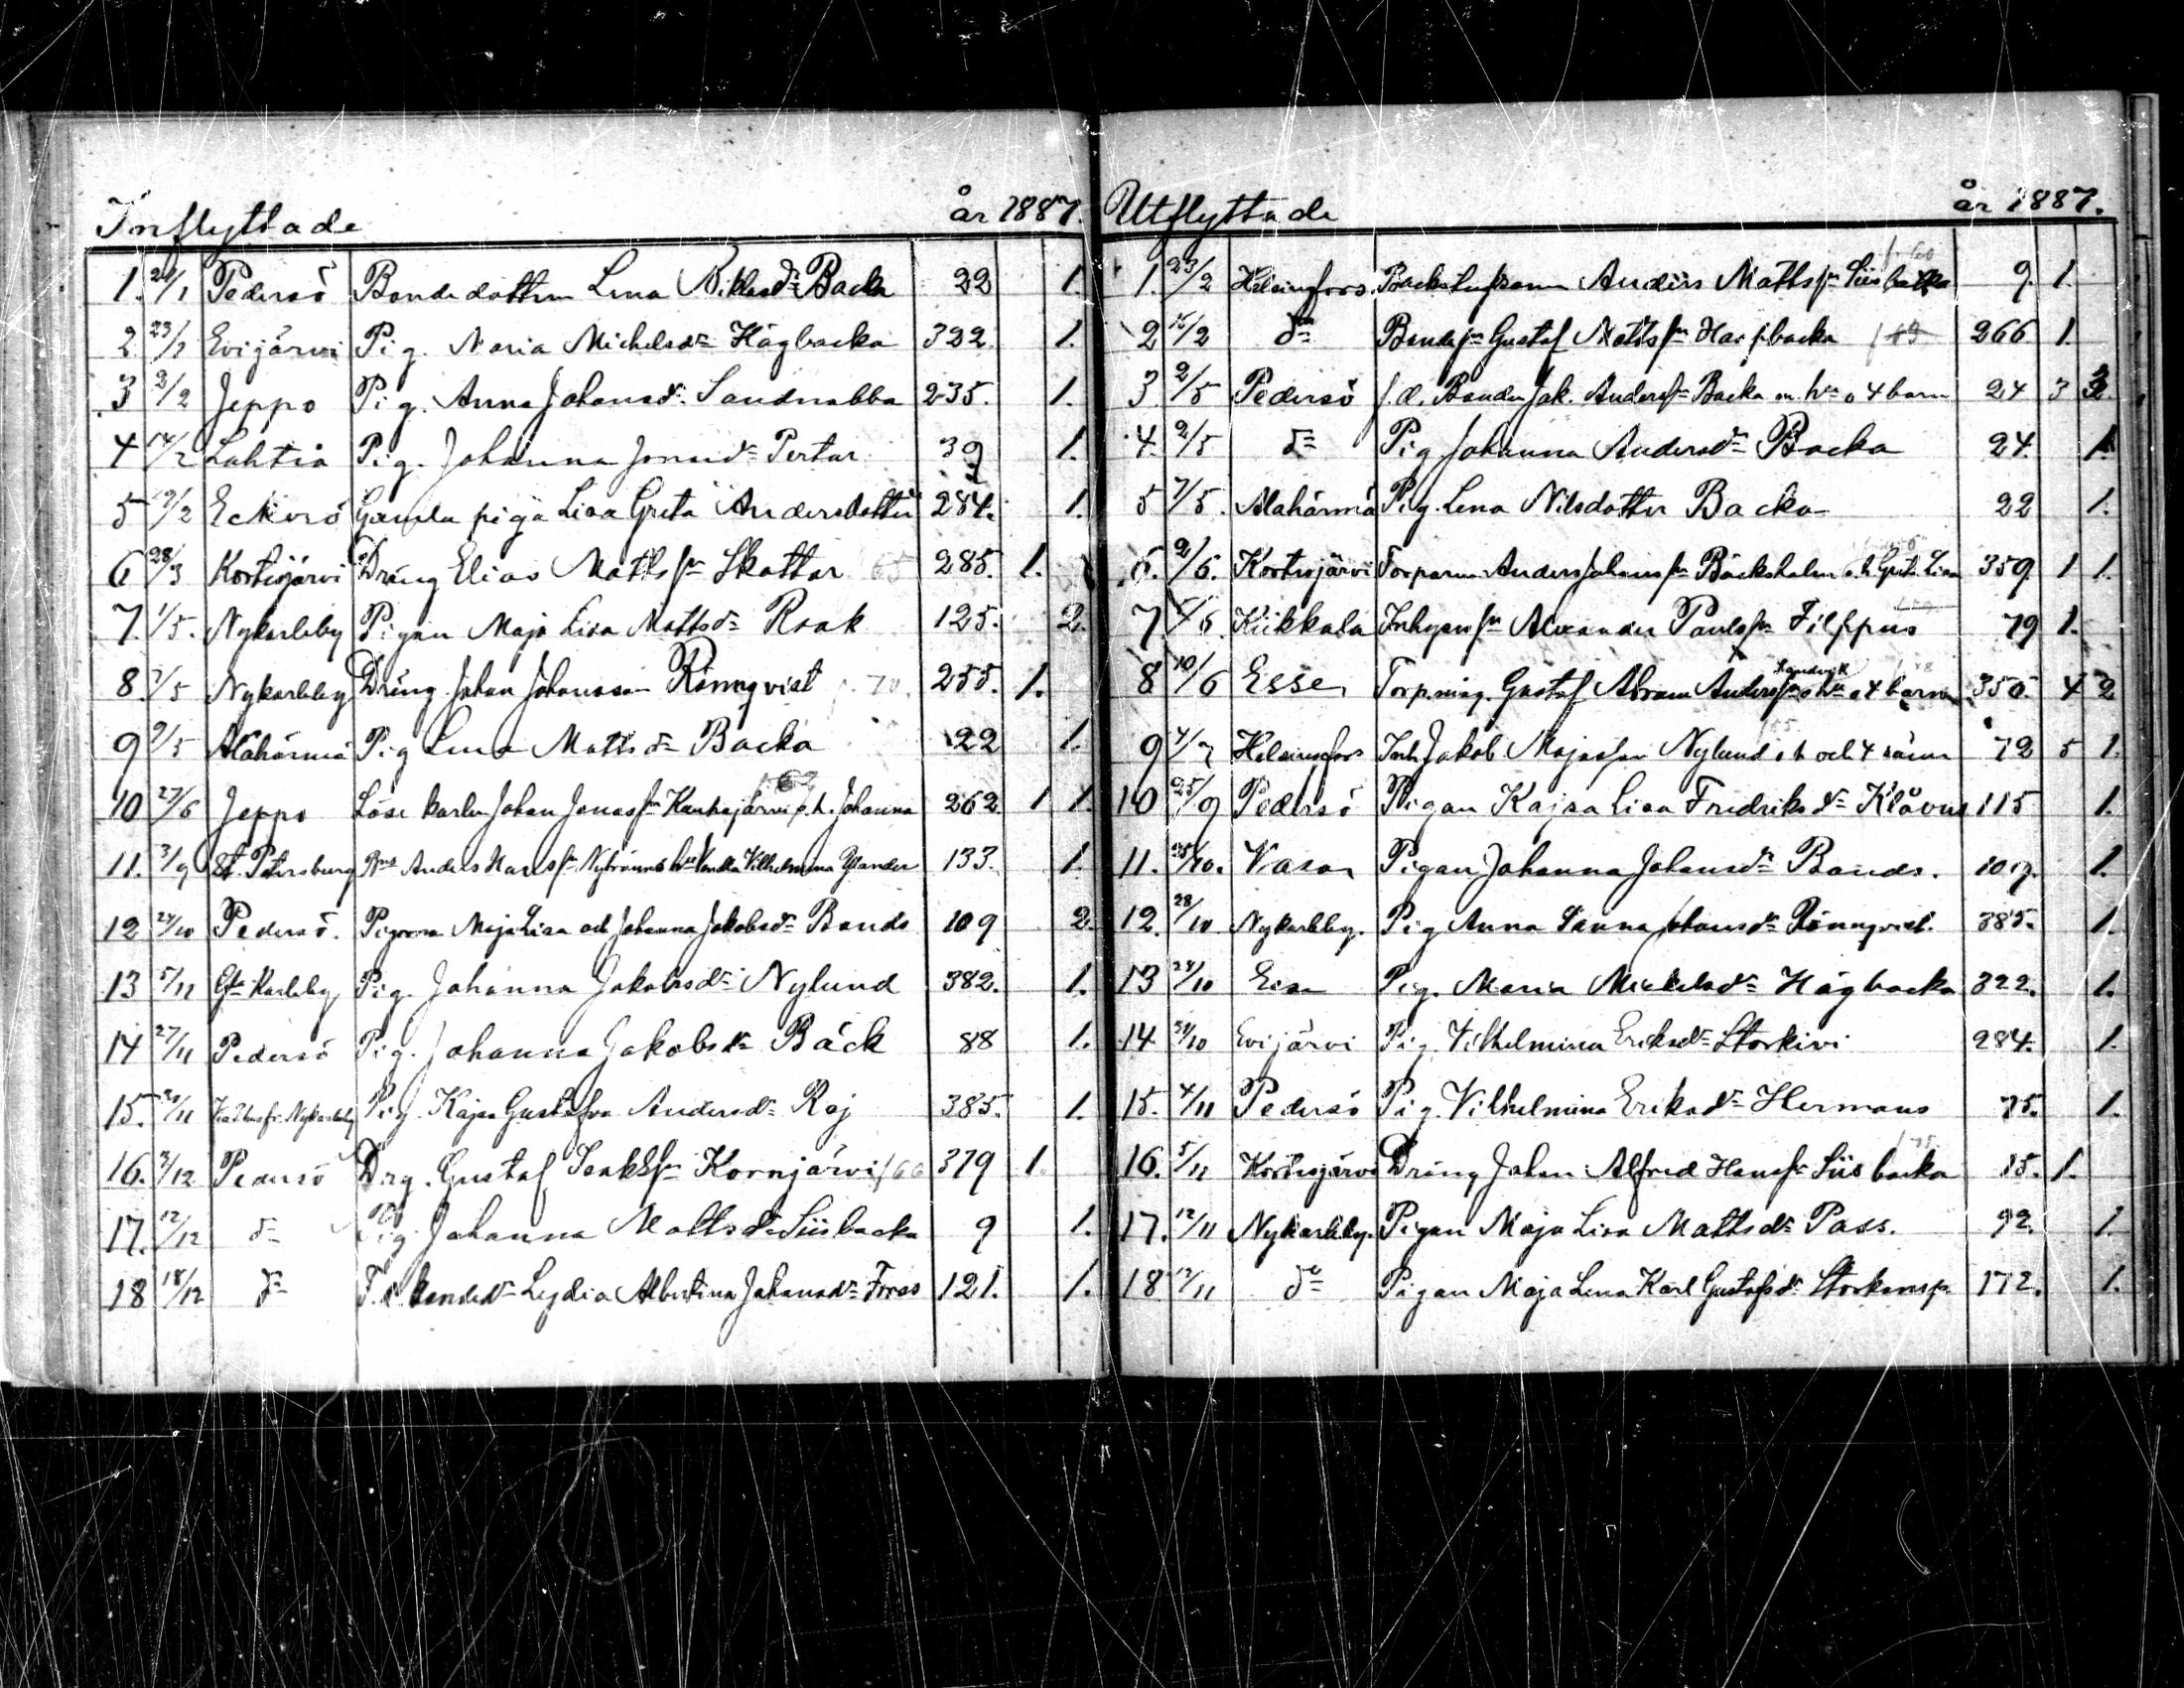 Inflyttade år 1887.
1. 24/1 Pedersö Bondedottren Lena Niklasdr Backa 22 1.
2 23/1 Evijärvi Pig. Maria Michelsdr Högbacka 322. 1.
3 2/2 Jeppo Pig. Anna Johansdr Sandnabba 235. 1.
4 14/2 Lahtia Pig. Johanna Jonasdr Pertar 39 1.
5 19/2 Gamla piga Lisa Greta Andersdotter 284. 1.
6 28/3 Kortesjärvi Dräng Elias Mattssn Skattar 65 285. 1.
7. 1/5. Nykarleby Pigan Maja Lisa Mattsdr Raak 125. 2.
8 7/5 Nykarleby Dräng Johan Johansson Rönnqvist 70. 255. 1.
9 9/5 Alahärmä Pig Lena Mattsdr Backa 22 1.
10 27/6 Jeppo Löse karlen Johan Jonassn Kauhajärvi o. h. Johanna 62 262. 1 1.
11. 3/9 St. Petersburg Anders Hanssn Nybränns hu Vendla Vilhelmina 133. 1.
12 24/10 Pedersö. Pigorna Maja Lisa och Johanna Jakobsdr Bonds 109 2.
13 5/11 Gla Karleby Pig. Johanna Jakobsdr Nylund 382. 1.
14 27/11 Pedersö Pig. Johanna Jakobsdr Bäck 88 1.
15. 29/11 Nykarleby Pig. Kajsa Gustafva Andersdr Raj 385. 1.
16. 3/12 Pedersö Drg. Gustaf Isakssn Kornjärvi /66 379 1.
17. 12/12 do Pig Johanna Mattsdr Siisbacka 9 1.
18 18/12 do Lydia Albertina Johansdr Forss 121. 1.
Utflyttade år 1887.
1. 23/2 Helsingfors. Anders Mattssn Siisbacka f. 60 9. 1.
2 15/2 do Bondesn Gustaf Mattssn Harfbacka 266 1.
3 2/5 Pedersö f. d. Bonden Jak. Anderssn Backa m. hu o 4 barn 24 3 3
4. 2/5 do Pig Johanna Andersdr Backa 24. 1.
5 7/5. Alahärmä Pig. Lena Nilsdotter Backa 22 1.
6. 2/6. Kortesjärvi Torparen Anders Johanssn Bäcksholm o. h. Greta Lisa 359. 1 1.
7 /6 Kiikkala Inhysessn Alexander Paulssn Filppus 79 1.
8 10/6 Esse, Torp.måg. Gustaf Abram Anderssn Sandvik o hu o 4 barn 350. 4 2
9 4/7 Helsingfors Inh Jakob Majasson Nylund o h och 4 söner 72 5 1.
10 25/9 Pedersö Pigan Kajsa Lisa Fredriksdr Klåvus 115 1.
11. 25/10. Vasa Pigan Johanna Johansdr Bonds. 109. 1.
12. 28/10 Nykarleby. Pig Anna Sanna Johansdr Rönnqvist. 385. 1.
13 28/10 Esse Pig. Maria Mickelsdr Högbacka 322. 1.
14 31/10 Evijärvi Pig. Vilhelmina Eriksdr Storkivi 284. 1.
15. 4/11 Pedersö Pig. Vilhelmina Eriksdr Hermans 75. 1.
16. 5/11 Kortesjärvi Dräng Johan Alfred Hanssn Siisbacka 15. 1.
17. 12/11 Nykarleby. Pigan Maja Lisa Mattsdr Pass. 92. 1.
18 12/11 do Pigan Maja Lena Karl Gustafsdr Storkamp. 172. 1.